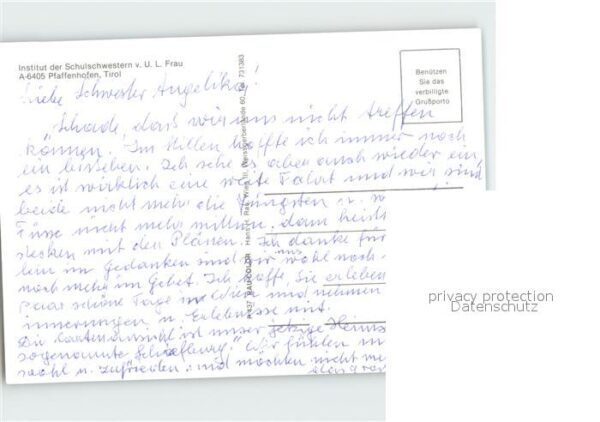 Institut der Schulschwestern v. U. L. Frau
A-6405 Pfaffenhofen, Tirol
Benützen
Sie das
verbilligte
Grußporto
Liebe Schwester Angelika!
Schade, daß wir uns nicht treffen
können. Im Stillen hoffte ich immer noch
ein bisschen. Ich sehe es aber auch wieder ein,
es ist wirklich eine weite Fahrt und wir sind
beide nicht mehr die Jüngsten u. w
Füsse nicht mehr mittun, dann heißt
stecken mit den Plänen. Ich danke für
in Gedanken sind wir uns wohl noch
noch mehr im Gebet. Ich hoffe, Sie erleben
paar schöne Tage in Wien und nehmen
innerungen u. Erlebnisse mit.
Die Kartenansicht ist unser jetzige Heims
sogenannte Schloßburg." Wir fühlen
wohl u. zufrieden und möchten nicht me
R 437 RAU-COLOR Hans H. Rau, Wien III, 60, Tel. 731383
privacy protection
Datenschutz